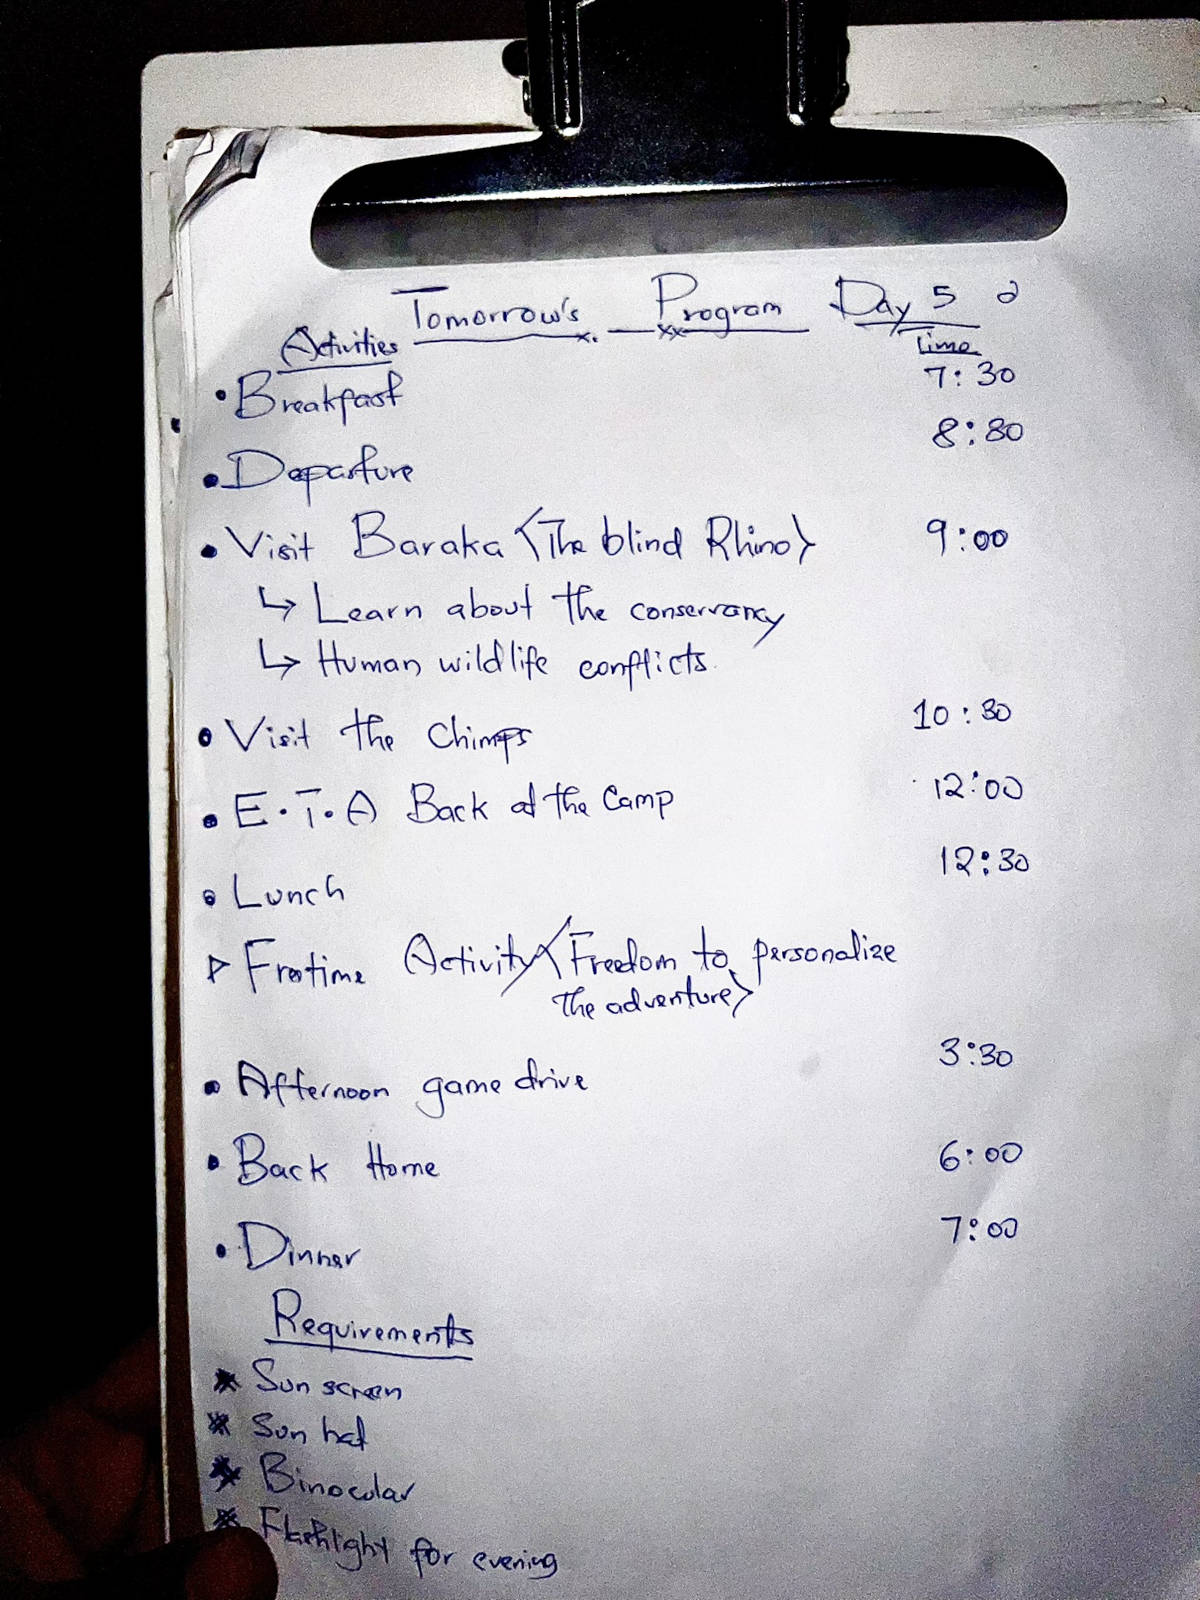 Tomorrow's Program Day 5
Activities Time
• Breakfast 7:30
• Departure 8:30
• Visit Baraka (The blind Rhino) 9:00
↳ Learn about the conservancy
↳ Human wildlife conflicts.
• Visit the Chimps 10:30
• E.T.A Back at the Camp 12:00
• Lunch 12:30
▷ Freetime Activity (Freedom to personalize
the adventure)
• Afternoon game drive 3:30
• Back Home 6:00
• Dinner 7:00
Requirements
* Sun screen
* Sun hat
* Binocular
* Flashlight for evening